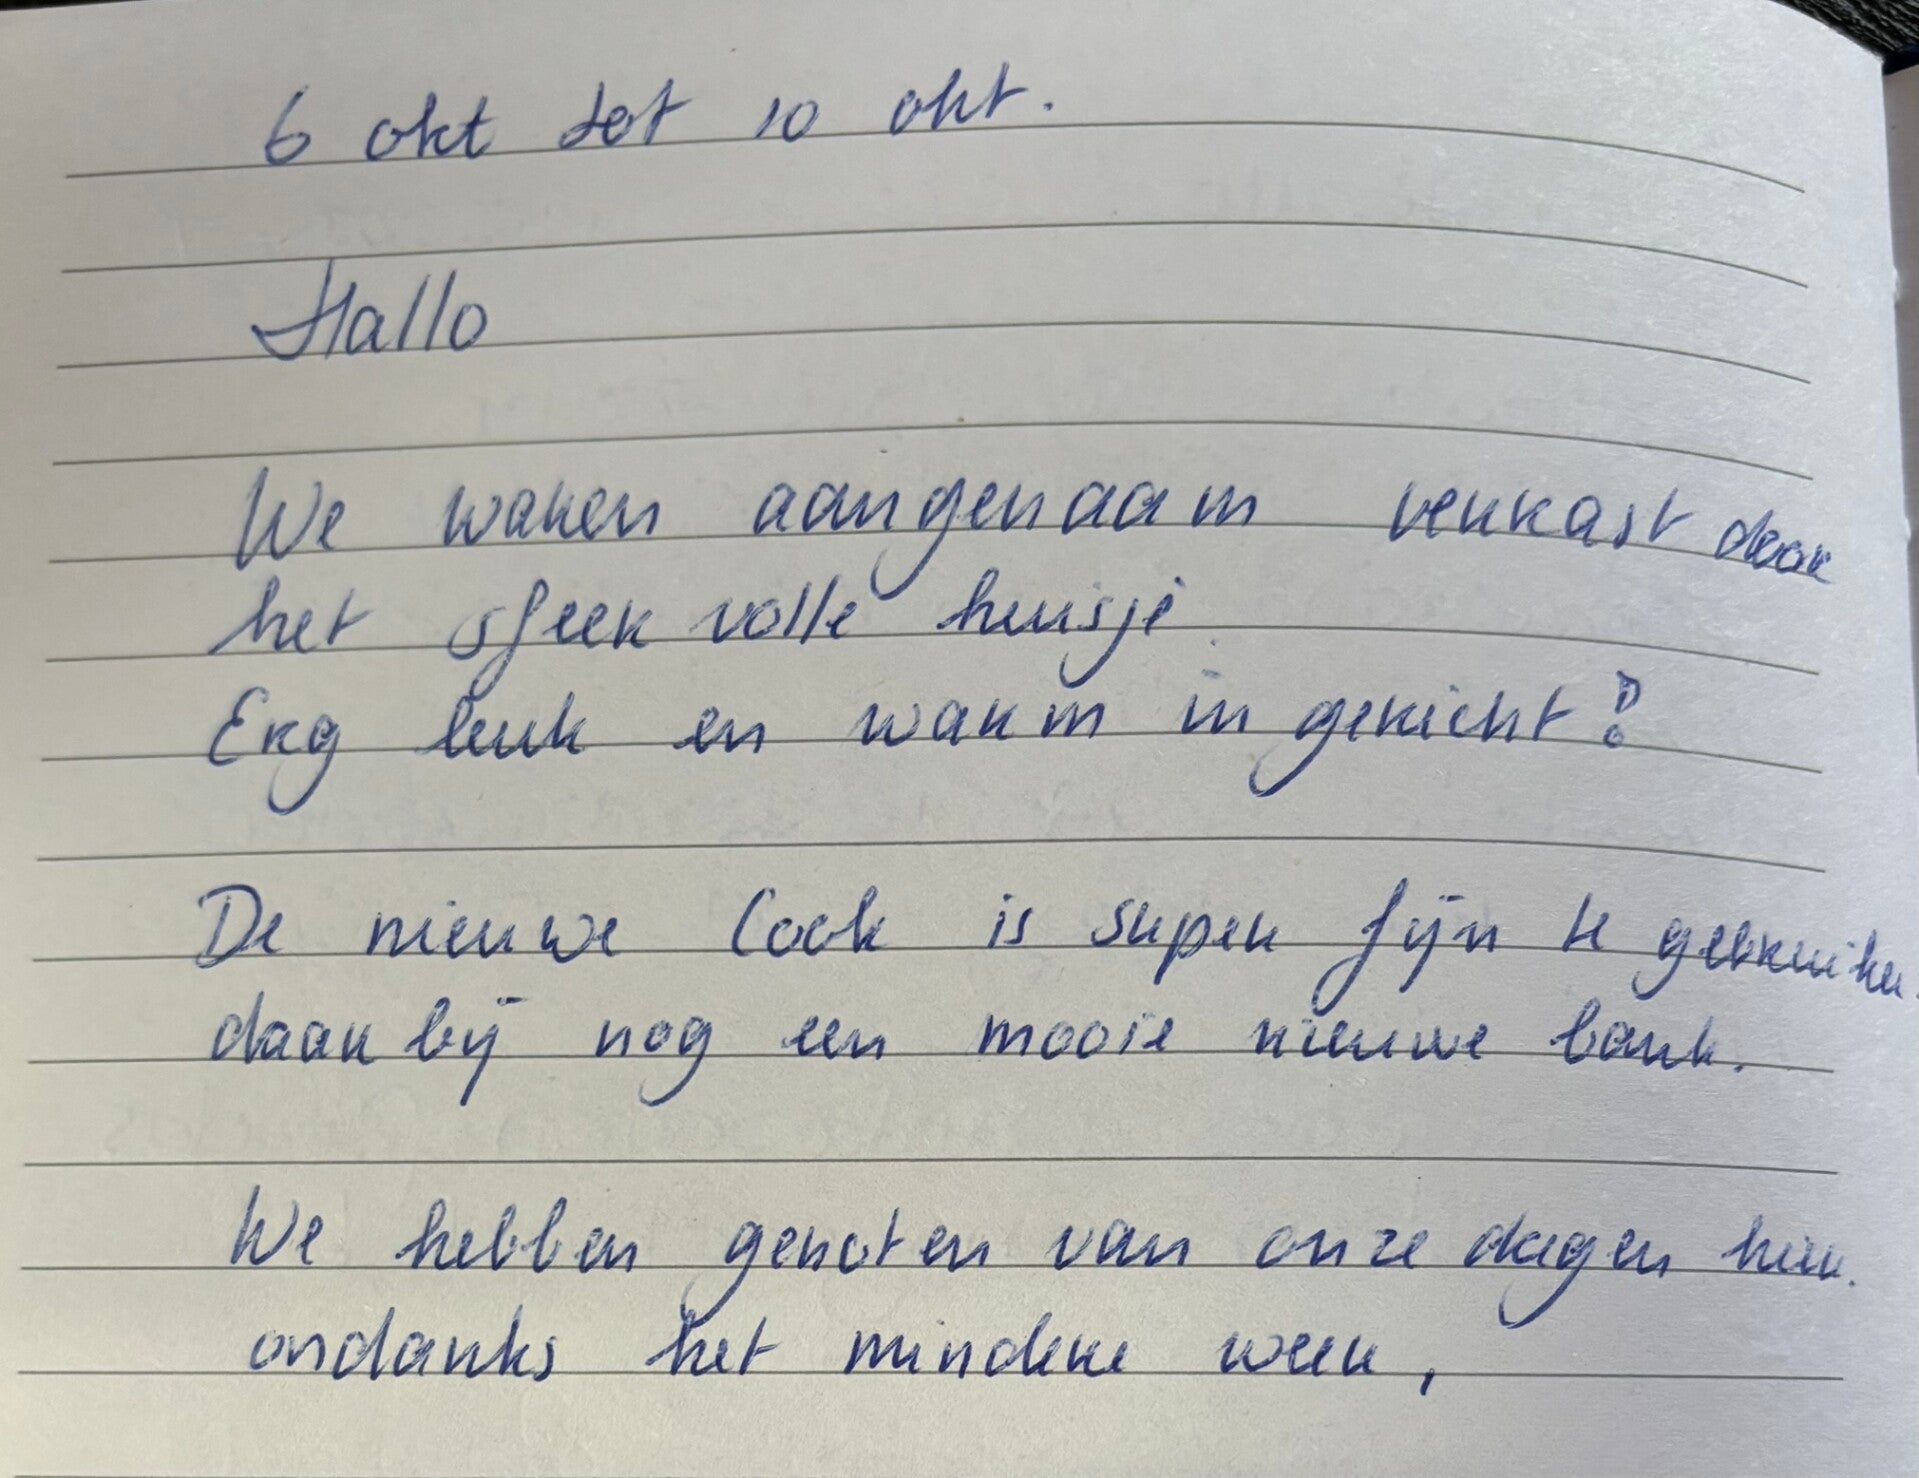 6 okt tot 10 okt.
Hallo
We waren aangenaam verrast door
het sfeervolle huisje
Erg leuk en warm ingericht!
De nieuwe Cook is super fijn te gebruiken
daarbij nog een mooie nieuwe bank.
We hebben genoten van onze dagen hier.
ondanks het mindere weer,